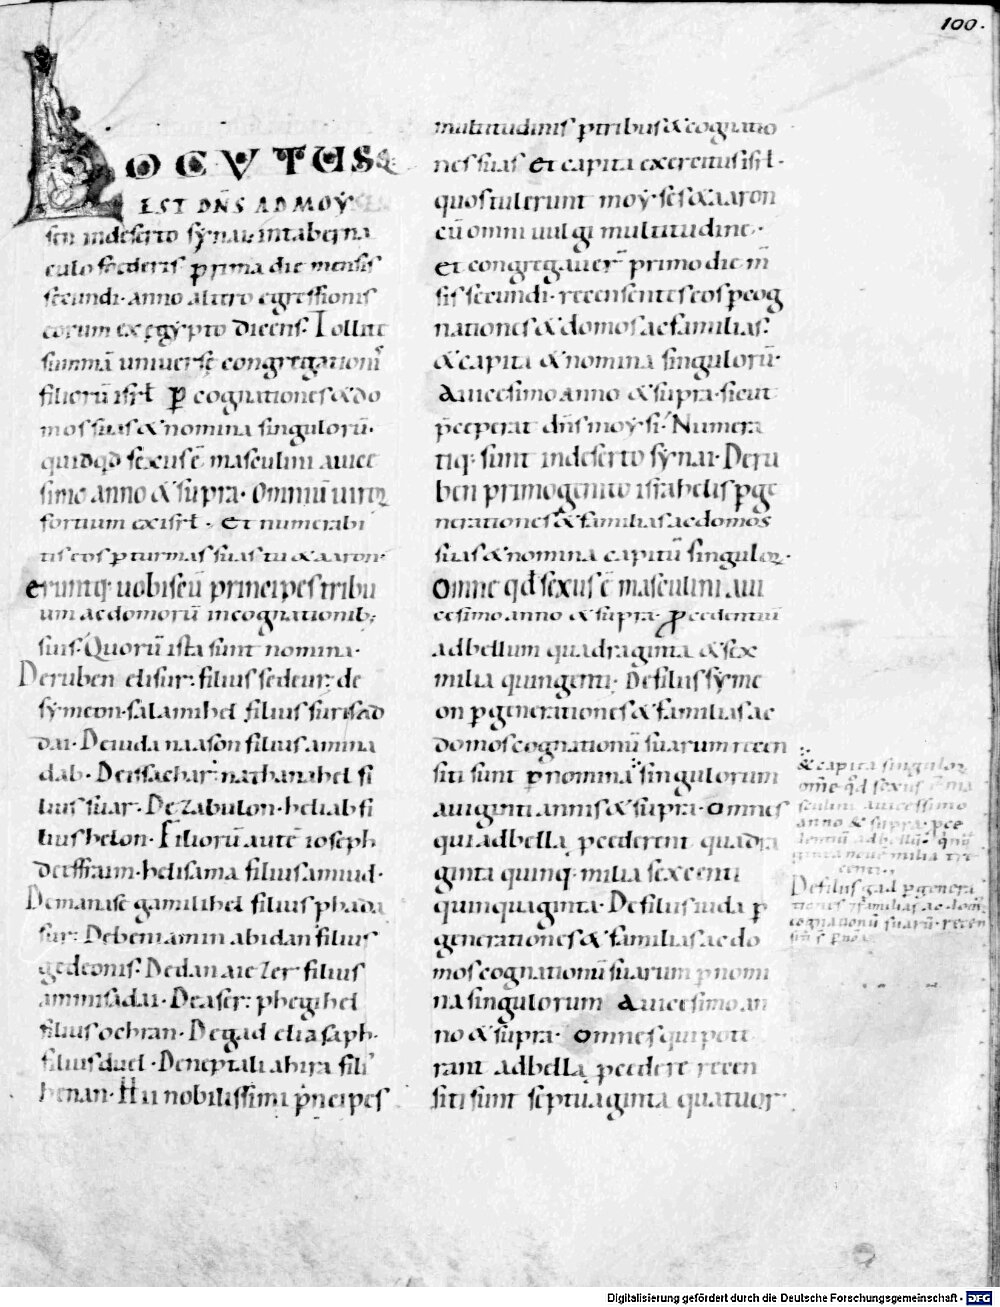 100.
LOCVTUSQ;
EST DNS AD MOY
sen indeserto synai intaberna
culo foederis prima die mensis
secundi· anno altero egressionis
eorum ex ęgypto dicens· Tollite
summā universę congregationis
filiorū isrł p cognationes & do
mos suas & nomina singulorū·
quidqd sexus ē masculini a uice
simo anno & supra· Omniū uiroꝝ
fortium ex isrł· Et numerabi
tis eos p turmas suas tu & aaron·
eruntq; uobiscū principes tribu
um ac domorū in cognationib;
suis· Quorū ista sunt nomina·
De ruben elisur· filius sedeur· de
symeon· salamihel filius surisad
dai· De iuda naason filius amina
dab· De issachar· nathanahel fi
lius suar· De zabulon· heliab fi
lius helon· Filiorū autē ioseph
de effraim· helisama filius amiud·
De manase gamilihel filius phada
sur· De beniamin abidan filius
gedeonis· De dan aiezer filius
ammisadai· De aser· phegihel
filius ochran· De gad eliasaph·
filius duel· De neptali ahira fili
henan· Hii nobilissimi pncipes
multitudinis p tribus & cognatio
nes suas Et capita exercitus isrł·
quos tulerunt moyses & aaron
cū omni uulgi multitudine·
et congregauer primo die m
sis secundi· recensentes eos p cog
nationes & domos ac familias·
& capita & nomina singulorū·
A uicesimo anno & supra· sicut
pceperat dns moysi· Numera
tiq; sunt in deserto synai· De ru
ben primogenito israhelis p ge
nerationes & familias ac domos
suas & nomina capitū singuloꝝ·
Omne qd sexus ē masculini a ui
cesimo anno & supra· pcedentiū
ad bellum quadraginta & sex
milia quingenti· De filiis syme
on p generationes & familias ac
domos cognationū suarum recen
siti sunt p nomina singulorum
a uiginti annis & supra· Omnes
qui ad bella pcederent quadra
ginta quinq; milia sexcenti
quinquaginta· De filiis iuda p
generationes & familias ac do
mos cognationū suarum p nomi
na singulorum A uicesimo an
no & supra· Omnes qui pote
rant ad bella pcedere recen
siti sunt septuaginta quatuor
& capita singuloꝝ
ōne qd sexus ē ma
sculini a uicessimo
anno & supra· pce
dentiū ad bellū· qnq
ginta noue milia tre
centi·
De filiis gad p genera
tiones 7 familias ac dom
cognationū suarū· recen
Digitalisierung gefördert durch die Deutsche Forschungsgemeinschaft - DFG